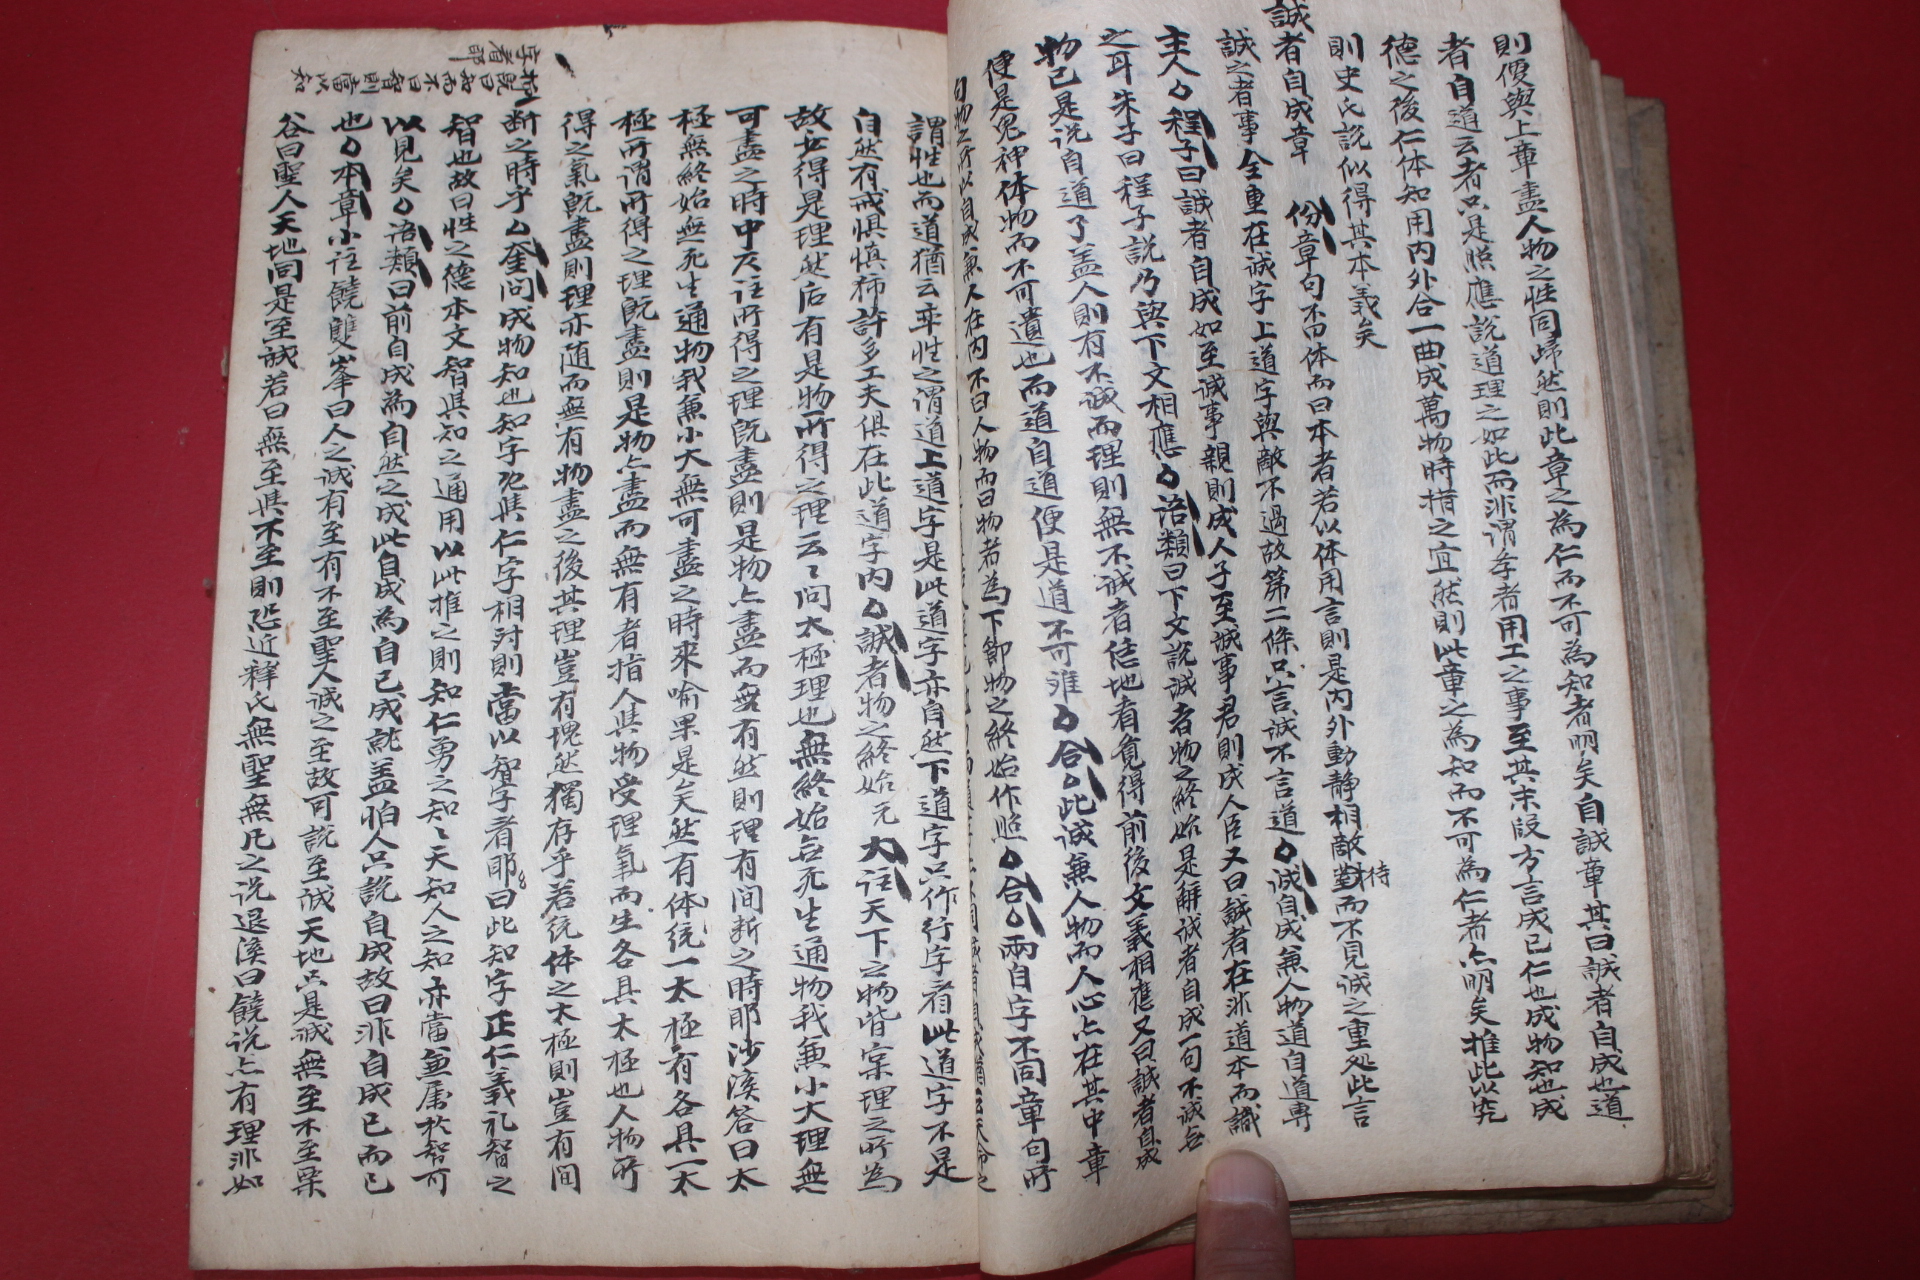 則便與上章盡人物之性同歸然則此章之為仁而不可為知者明矣自誠章其曰誠者自成也道
者自道云者只是照應說道理之如此而非謂學者用工之事至其末段方言成己仁也成物知也成
德之後仁体知用內外合一曲成萬物時措之宜然則此章之為知而不可為仁者亦明矣推此以究
則史氏說似得其本義矣
誠者自成章 份章句不曰体而曰本者若以体用言則是內外動靜相敵對待而不見誠之重処此言
誠之者事全重在誠字上道字與敵不過故第二條只言誠不言道○誠自成兼人物道自道專
主人○程子曰誠者自成如至誠事親則成人子至誠事君則成人臣又曰誠者在非道本而誠
之耳朱子曰程子說乃與下文相應○語類曰下文說誠者物之終始是解誠者自成一句不誠無
物已是說自道了盖人則有不誠而理則無不誠者恁地看覓得前後文義相應又曰誠者自成
便是鬼神体物而不可遺也而道自道便是道不可離○合○此誠兼人物而人心亦在其中章
句物之所以自成兼人在內不曰人物而曰物者為下節物之終始作照○合○兩自字不同章句所
謂性也而道猶云率性之謂道上道字是此道字亦自然下道字只作行字看此道字不是
自然有戒惧慎怖許多工夫俱在此道字內○誠者物之終始元 大注天下之物皆實理之所為
故必得是理然后有是物所得之理云云問太極理也無終始無死生通物我兼小大理無
可盡之時中又注所得之理旣盡則是物亦盡而無有然則理有間斷之時耶沙溪答曰太
極無終始無死生通物我兼小大無可盡之時來喻果是矣然有体統一太極有各具一太
極所謂所得之理旣盡則是物亦盡而無有者指人與物受理氣而生各具太極也人物所
得之氣旣盡則理亦随而無有物盡之後其理豈有塊然獨存乎若統体之太極則豈有間
断之時乎○奎問成物知也知字旣與仁字相対則當以智字看耶曰此知字正仁義礼智之
智也故曰性之德本文智與知之通用以此推之則知仁勇之知知天知人之知亦當並屬於智可
以見矣○語類曰前自成為自然之成此自成為自己成就盖怕人只說自成故曰非自成己而已
也○本章小注饒雙峯曰人之誠有至有不至聖人誠之至故可說至誠天地只是誠無至不至栗
谷曰聖人天地同是至誠若曰無至與不至則恐近釋氏無聖無凡之說退溪曰饒說亦有理非如
旣曰知而不曰智則當以知
字看耶